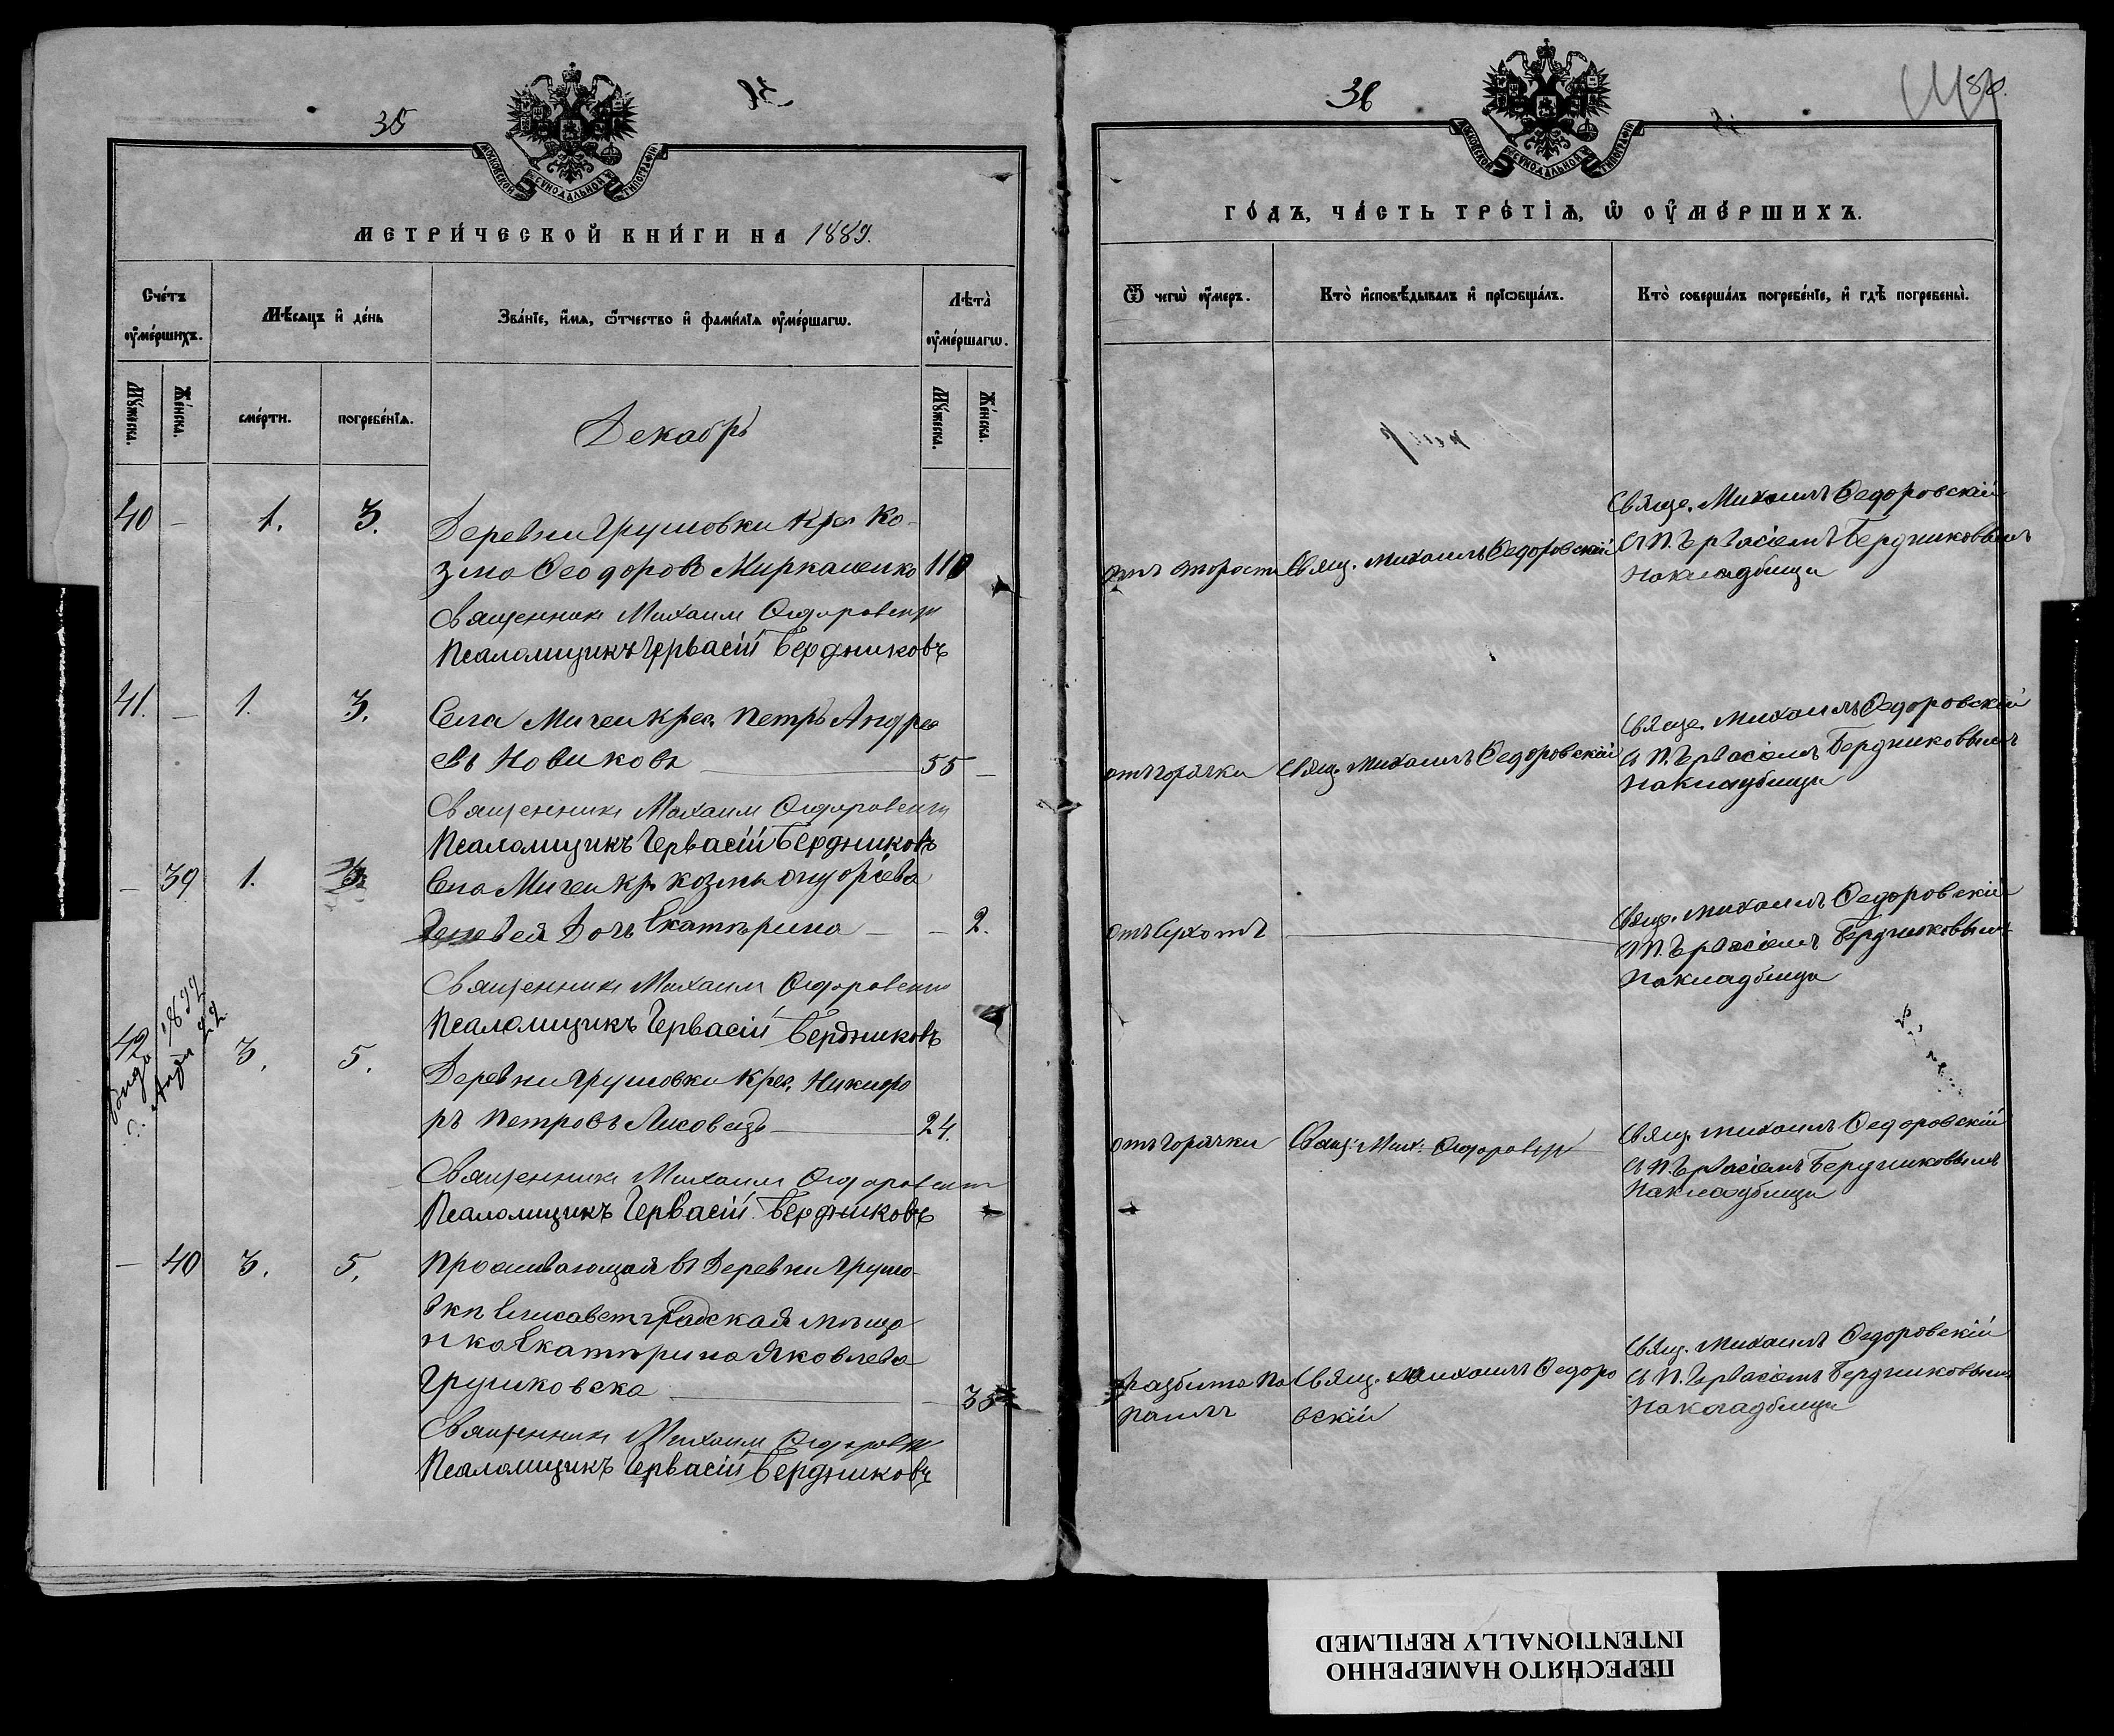 35
МОСКОВСКОЙ СѴНОДАЛЬНОЙ ТИПОГРАФІИ
МЕТРИ́ЧЕСКОЙ КНИ́ГИ НА 1889.
Сче́тъ оу҆ме́ршихъ.
Мѣ́сяцъ и҆ де́нь
Зва́нїе, и҆́мя, ѻ҆́тчество и҆ фами́лїя оу҆ме́ршагѡ.
Лѣта̀ оу҆ме́ршагѡ.
Му́жеска.
Же́нска.
сме́рти.
погребе́нїя.
Му́жеска.
Же́нска.
Декабрь
40 — 1. 3. Деревни Грушовки Кре. Ко-
зма Ѳеодоровъ Миркаленко 110
Священникъ Михаилъ Ѳедоровскій
Псаломщикъ Гервасій Бердниковъ
41. — 1. 3. Села Мигеи Крес. Петръ Андре
евъ Новиковъ 55 —
Священникъ Михаилъ Ѳедоровскій
Псаломщикъ Гервасій Бердниковъ
— 39 1. 3. Села Мигеи Кр. Козмы
дочь Екатерина — — 2.
Священникъ Михаилъ Ѳедоровскій
Псаломщикъ Гервасій Бердниковъ
42 3. 5. Деревни Грушовки Крес. Никифо
ръ Петровъ 24.
Священникъ Михаилъ Ѳедоровскій
Псаломщикъ Гервасій Бердниковъ
— 40 3. 5. Проживающая въ Деревни Грушо-
вки Елисаветградская мѣща
нка Екатерина Яковлева
Грушковска — 35
Священникъ Михаилъ Ѳедоровскій
Псаломщикъ Гервасій Бердниковъ
36
МОСКОВСКОЙ СѴНОДАЛЬНОЙ ТИПОГРАФІИ
ГО́ДЪ, ЧА́СТЬ ТРЕ́ТІѦ, Ѡ҆ ОУ҆МЕ́РШИХЪ.
Ѿ чегѡ̀ оу҆́меръ.
Кто̀ и҆сповѣ́дывалъ и҆ прїѡбща́лъ.
Кто̀ соверша́лъ погребе́нїе, и҆ гдѣ̀ погребены̀.
Свяще. Михаилъ Ѳедоровскій
отъ старости Свящ. Михаилъ Ѳедоровскій съ П. Гервасіемъ Бердниковымъ
на кладбищи
Свяще. Михаилъ Ѳедоровскій
отъ горячки Свящ. Михаилъ Ѳедоровскій съ П. Гервасіемъ Бердниковымъ
на кладбищи
Свящ. Михаилъ Ѳедоровскій
отъ сухотъ съ П. Гервасіемъ Бердниковымъ
на кладбищи
Свящ. Михаилъ Ѳедоровскій
отъ горячки Свящ. Мих. Ѳедоровскій съ П. Гервасіемъ Бердниковымъ
на кладбищи
Свящ. Михаилъ Ѳедоровскій
Свящ. Михаилъ Ѳедоро съ П. Гервасіемъ Бердниковымъ
вскій на кладбищи
ПЕРЕСНЯТО НАМЕРЕННО
INTENTIONALLY REFILMED